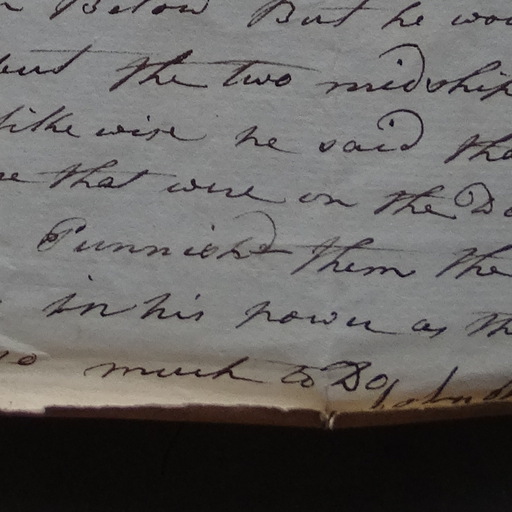 Below But he wou
but the two midship
likewise he said tha
that were on the De
Punnish them the
in his power as th
so much to Do John